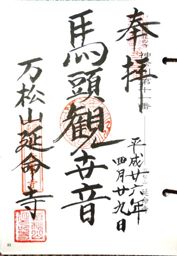 奉拝
平成廿六年
四月廿九日
馬頭観世音
万松山延命寺